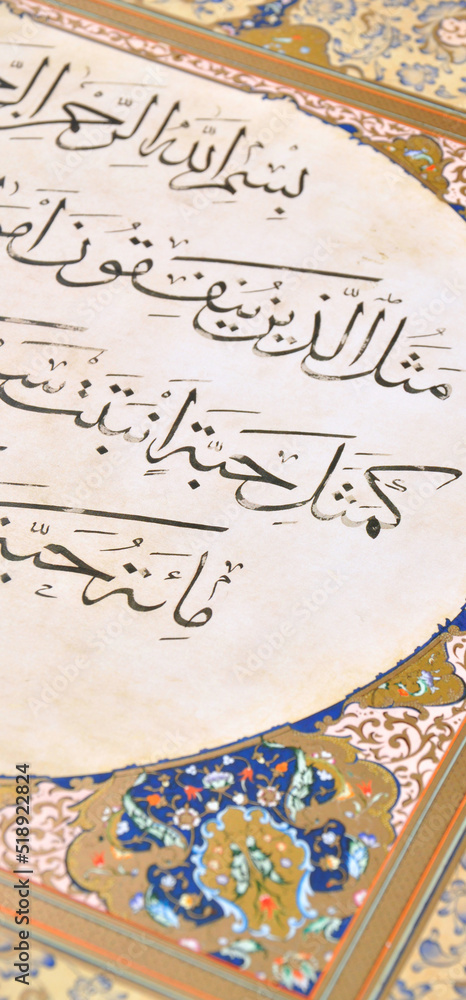 بِسْمِ اللّٰهِ الرَّحْمٰنِ
مَثَلُ الَّذِينَ يُنْفِقُونَ
كَمَثَلِ حَبَّةٍ اَنْبَتَتْ
مِائَةُ حَبَّةٍ
Adobe Stock | 518922824